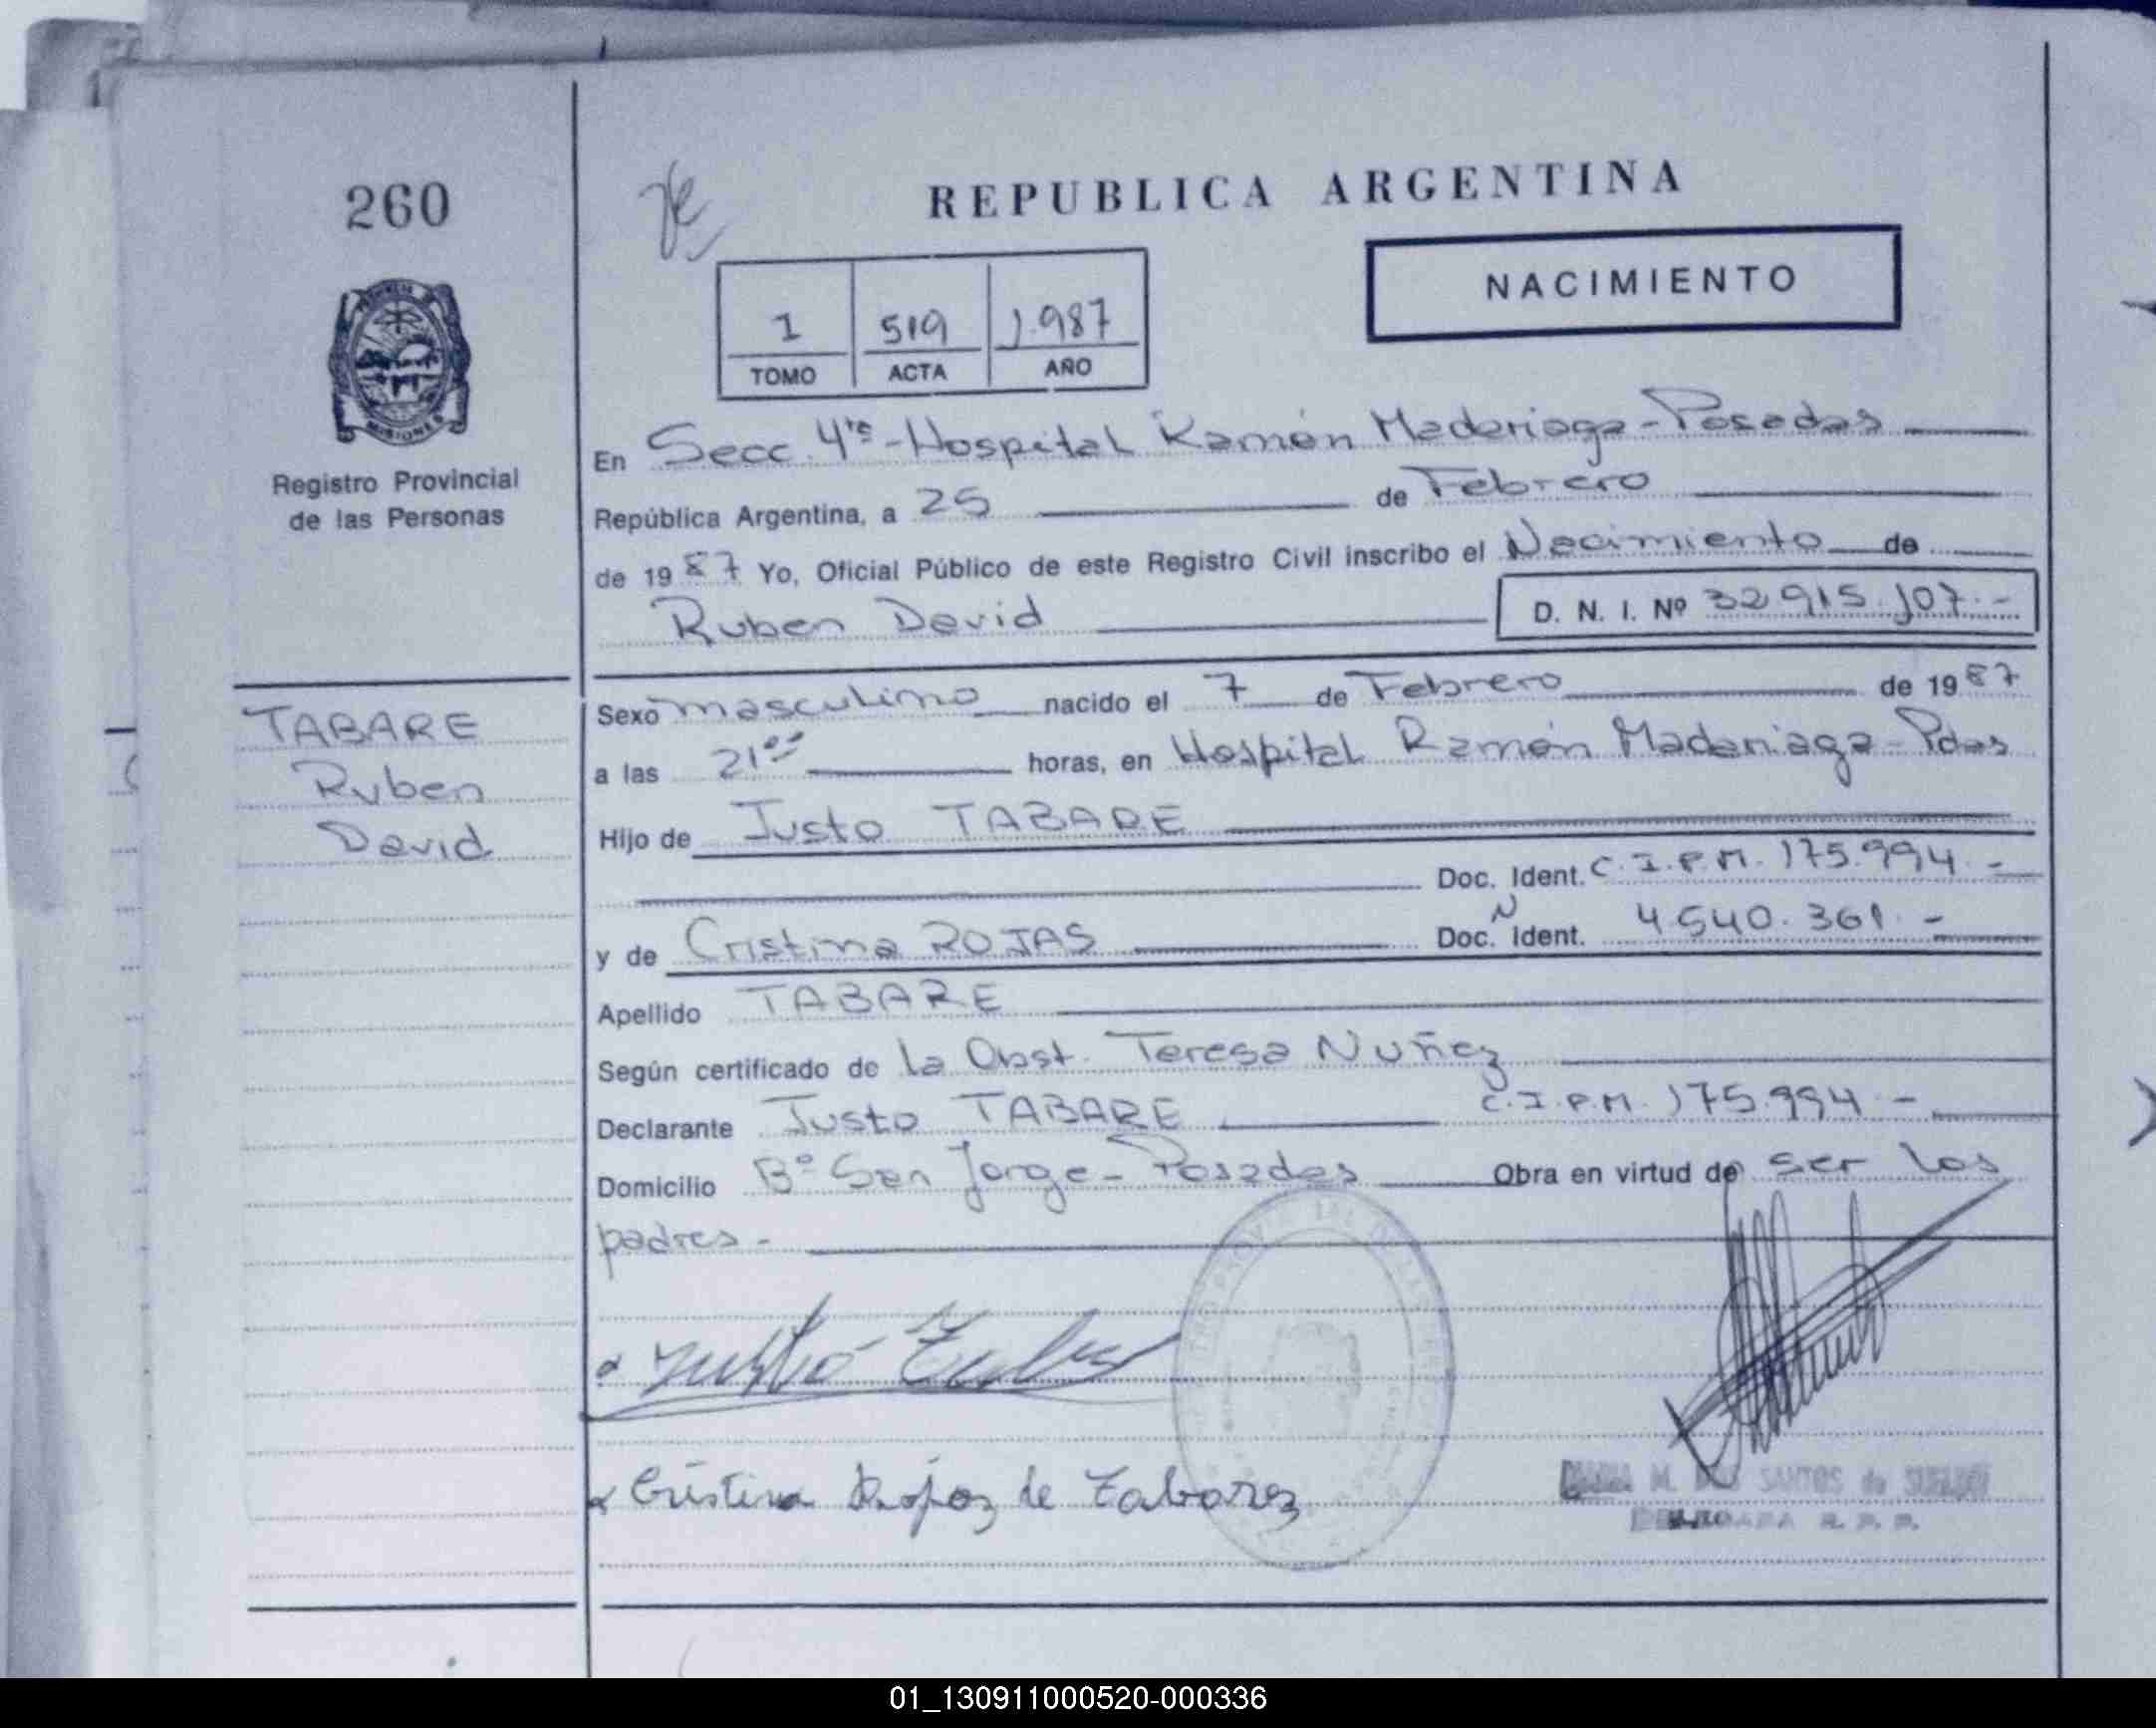 260
REPUBLICA ARGENTINA
NACIMIENTO
1 519 1.987
TOMO ACTA AÑO
Registro Provincial
de las Personas
En Secc. 4ta - Hospital Ramón Madariaga - Posadas
República Argentina, a 25 de Febrero
de 1987 Yo, Oficial Público de este Registro Civil inscribo el Nacimiento de
Ruben David D. N. I. Nº 32.915.107.-
TABARE
Ruben
David
Sexo masculino nacido el 7 de Febrero de 1987
a las 21ºº horas, en Hospital Ramón Madariaga - Pdas
Hijo de Justo TABARE
Doc. Ident. C.I.P.M. 175.994.-
y de Cristina ROJAS Doc. N Ident. 4.540.361.-
Apellido TABARE
Según certificado de la Obst. Teresa Nuñez
Declarante Justo TABARE C.I.P.M. 175.994.-
Domicilio Bº San Jorge - Posadas Obra en virtud de ser los
padres.-
Cristina Rojas de Tabarez
M. DOS SANTOS de
DELEGADA R. P. P.
01_130911000520-000336